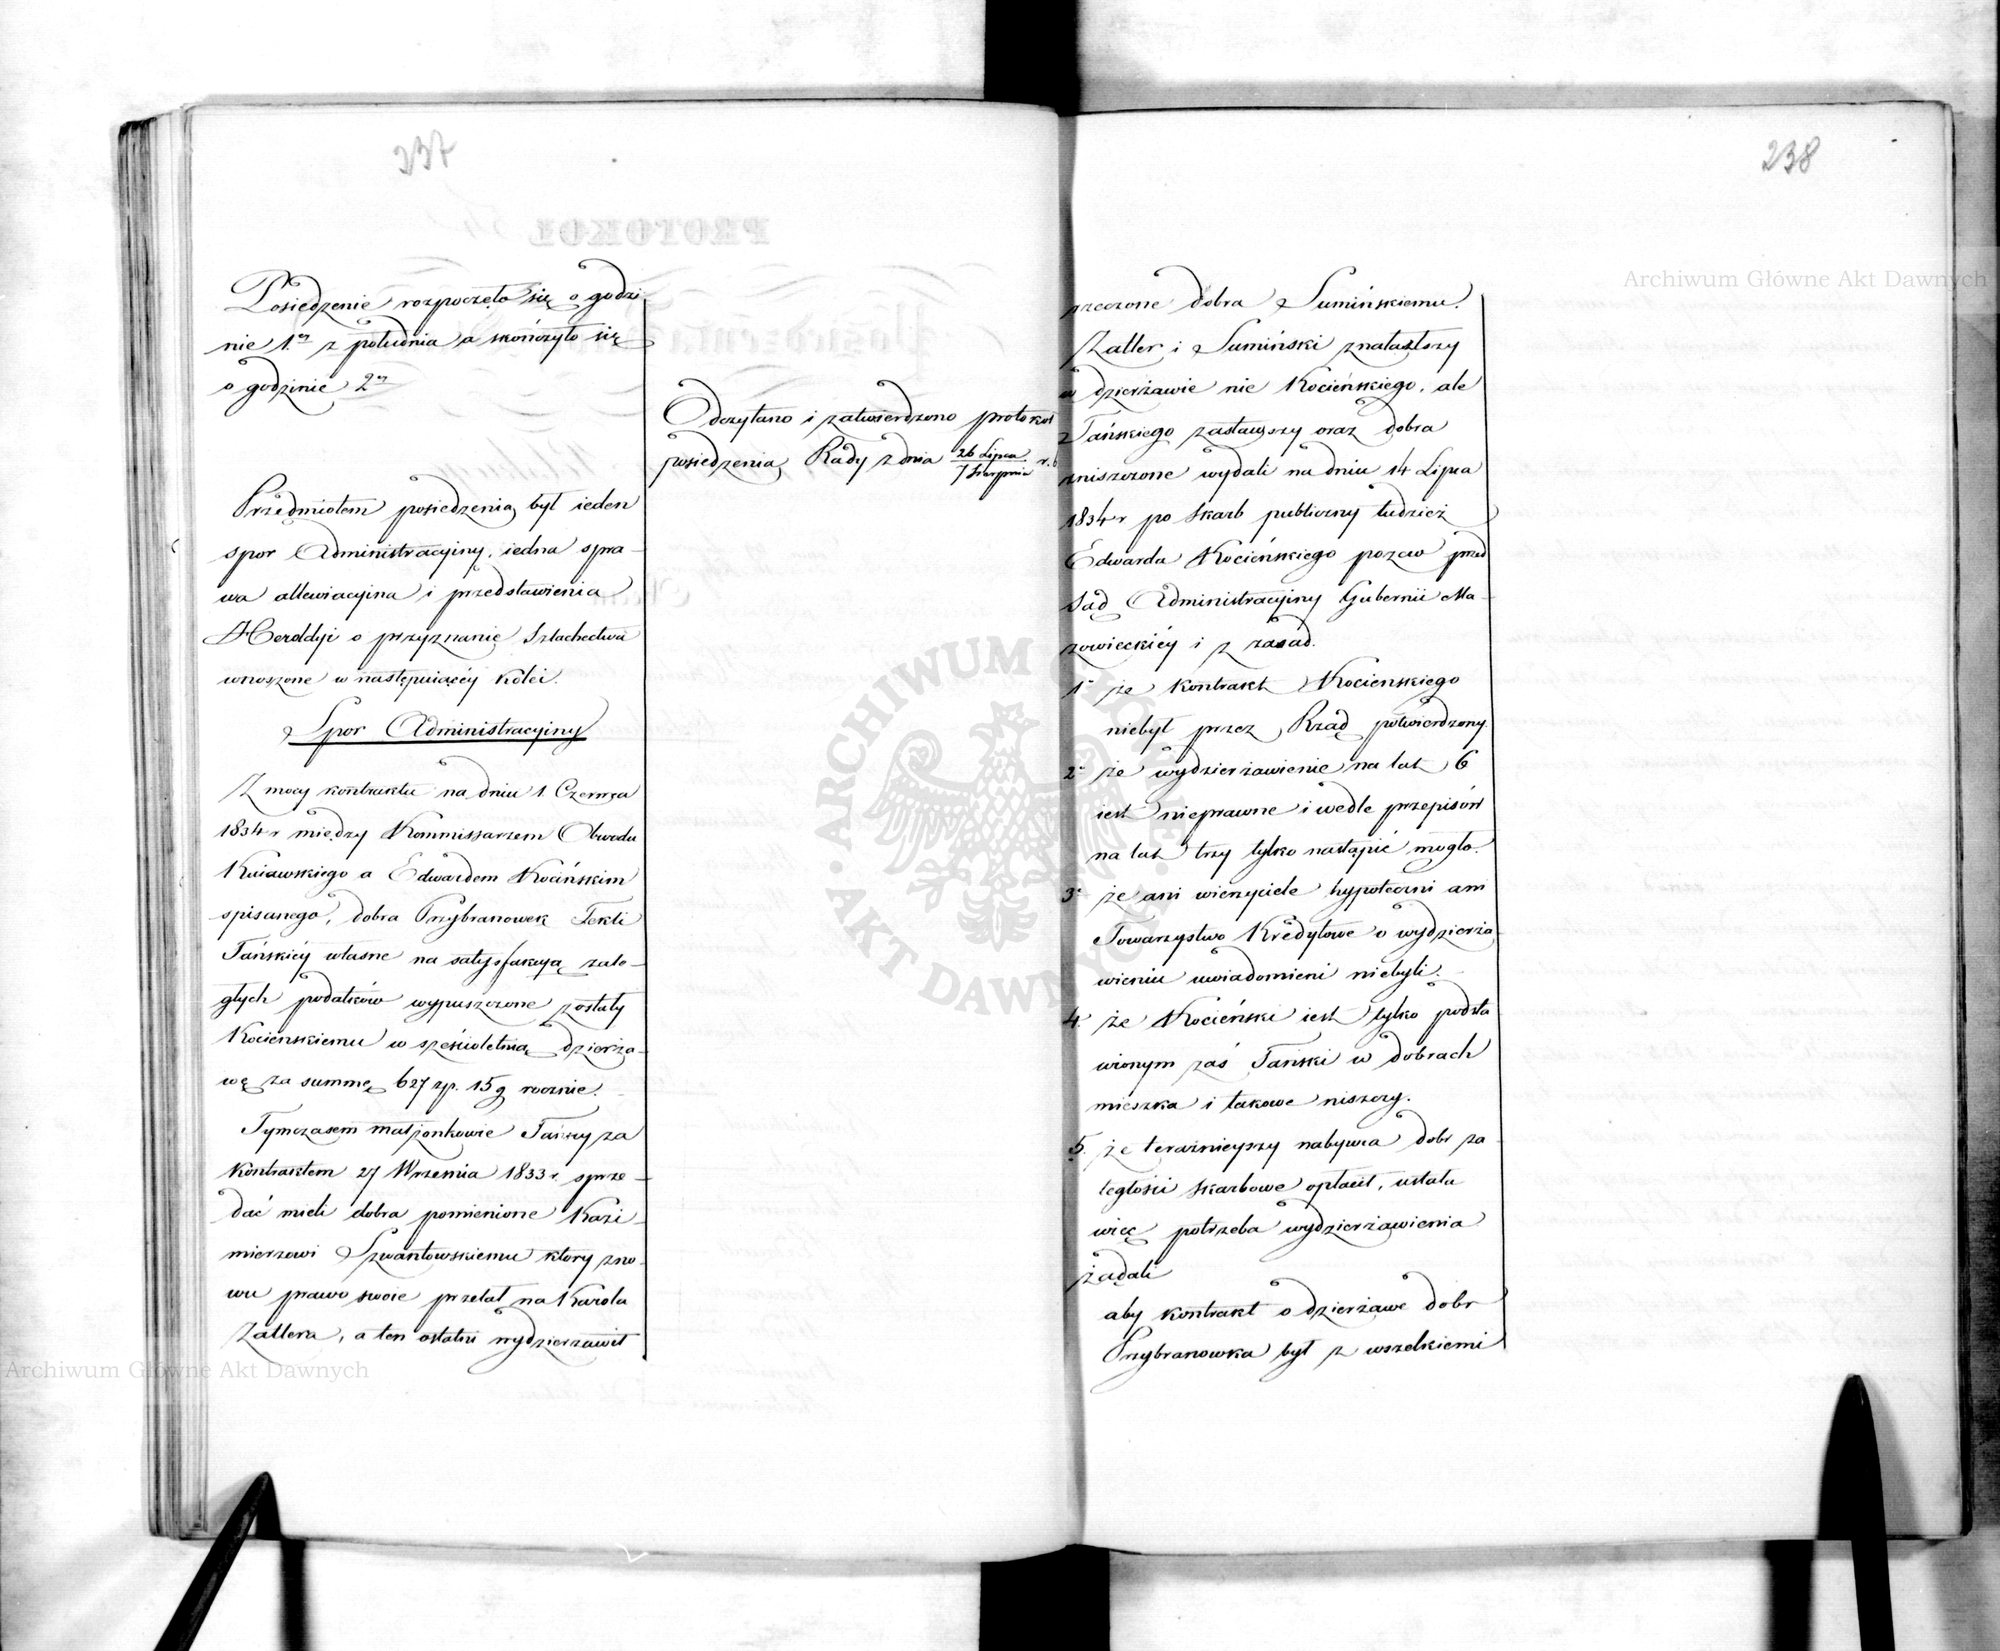 237
Posiedzenie rozpoczęło się o godzi
nie 1.ey z południa a skończyło się
o godzinie 2ey
Odczytano i zatwierdzono protokół
posiedzenia Rady z dnia 26 Lipca / 7 Sierpnia r. b.
Przedmiotem posiedzenia był ieden
spor Administracyiny, iedna spra-
wa allewiacyina i przedstawienia
Heroldyi o przyznanie Szlachectwa
wnoszone w następuiącéy kolei.
Spor Administracyiny
Z mocy kontraktu na dniu 1. Czerwca
1834 r między Kommissarzem Obwodu
Kuiawskiego a Edwardem Kocińskim
spisanego, dobra Przybranowek Tekli
Tańskiéy własne na satysfakcyą zale-
głych podatków wypuszczone zostały
Kocienskiemu w sześcioletnią dzierża-
wę za summę 627 zp. 15 g rocznie.
Tymczasem małżonkowie Tańscy za
kontraktem 27 Września 1833 r. sprze-
dać mieli dobra pomienione Kazi-
mierzowi Szwantowskiemu który zno-
wu prawo swoie przelał na Karola
Zallera, a ten ostatni wydzierzawił
238
rzeczone dobra Sumińskiemu.
Zaller i Sumiński znalazłszy
w dzierżawie nie Kocieńskiego, ale
Tańskiego zastawszy oraz dobra
zniszczone wydali na dniu 14 Lipca
1834 r po Skarb publiczny tudzież
Edwarda Kocieńskiego pozew przed
Sąd Administracyiny Gubernii Ma-
zowieckiéy i z zasad.
1e że kontrakt Kocienskiego
niebył przez Rząd potwierdzony.
2e że wydzierżawienie na lat 6
iest nieprawne i wedle przepisów
na lat trzy tylko nastąpić mogło.
3e że ani wierzyciele hypoteczni ani
Towarzystwo Kredytowe o wydzierża-
wieniu uwiadomieni niebyli.
4. że Kocieński iest tylko podsta
wionym zaś Tański w dobrach
mieszka i takowe niszczy.
5. że teraźnieyszy nabywca dobr za-
ległości skarbowe opłacił, ustała
więc potrzeba wydzierżawienia
żądali
aby kontrakt o dzierżawę dobr
Przybranowka był z wszelkiemi
Archiwum Główne Akt Dawnych
Archiwum Główne Akt Dawnych
ARCHIWUM GŁÓWNE
AKT DAWNYCH